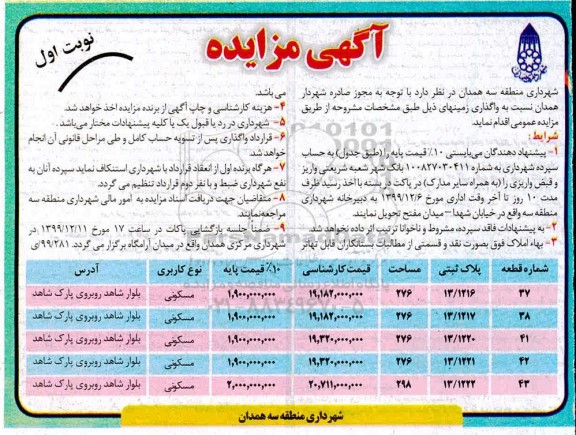 آگهی مزایده
نوبت اول
شهرداری منطقه سه همدان در نظر دارد با توجه به مجوز صادره شهردار
همدان نسبت به واگذاری زمینهای ذیل طبق مشخصات مشروحه از طریق
مزایده عمومی اقدام نماید.
شرایط:
۱- پیشنهاد دهندگان می‌بایستی ۱۰٪ قیمت پایه را (طبق جدول) به حساب
سپرده شهرداری به شماره ۱۰۰۸۲۷۰۳۰۴۱۱ بانک شهر شعبه شریعتی واریز
و قبض واریزی را (به همراه سایر مدارک) در پاکت در بسته با اخذ رسید ظرف
مدت ۱۰ روز تا آخر وقت اداری مورخ ۱۳۹۹/۱۲/۶ به دبیرخانه شهرداری
منطقه سه واقع در خیابان شهدا – میدان مفتح تحویل نمایند.
۲- به پیشنهادات فاقد سپرده، مشروط و ناخوانا ترتیب اثر داده نخواهد شد.
۳- بهاء املاک فوق بصورت نقد و قسمتی از مطالبات بستانکاران قابل تهاتر
می باشد.
۴- هزینه کارشناسی و چاپ آگهی از برنده مزایده اخذ خواهد شد.
۵- شهرداری در رد یا قبول یک یا کلیه پیشنهادات مختار می‌باشد.
۶- قرارداد واگذاری پس از تسویه حساب کامل و طی مراحل قانونی آن انجام
خواهد شد.
۷- هرگاه برنده اول از انعقاد قرارداد با شهرداری استنکاف نماید سپرده آنان به
نفع شهرداری ضبط و با نفر دوم قرارداد تنظیم می گردد.
۸- متقاضیان جهت دریافت اسناد مزایده به امور مالی شهرداری منطقه سه
مراجعه نمایند.
۹- ضمناً جلسه بازگشایی پاکات در ساعت ۱۷ مورخ ۱۳۹۹/۱۲/۱۱ در
شهرداری مرکزی همدان واقع در میدان آرامگاه برگزار می گردد. ۹۹/۲۸۱
شماره قطعه پلاک ثبتی مساحت قیمت کارشناسی ۱۰٪ قیمت پایه نوع کاربری آدرس
۳۷ ۱۳/۱۲۱۶ ۲۷۶ ۱۹,۱۸۲,۰۰۰,۰۰۰ ۱,۹۰۰,۰۰۰,۰۰۰ مسکونی بلوار شاهد روبروی پارک شاهد
۳۸ ۱۳/۱۲۱۷ ۲۷۶ ۱۹,۱۸۲,۰۰۰,۰۰۰ ۱,۹۰۰,۰۰۰,۰۰۰ مسکونی بلوار شاهد روبروی پارک شاهد
۴۱ ۱۳/۱۲۲۰ ۲۷۶ ۱۹,۳۲۰,۰۰۰,۰۰۰ ۱,۹۰۰,۰۰۰,۰۰۰ مسکونی بلوار شاهد روبروی پارک شاهد
۴۲ ۱۳/۱۲۲۱ ۲۷۶ ۱۹,۳۲۰,۰۰۰,۰۰۰ ۱,۹۰۰,۰۰۰,۰۰۰ مسکونی بلوار شاهد روبروی پارک شاهد
۴۳ ۱۳/۱۲۲۲ ۲۹۸ ۲۰,۷۱۱,۰۰۰,۰۰۰ ۲,۰۰۰,۰۰۰,۰۰۰ مسکونی بلوار شاهد روبروی پارک شاهد
شهرداری منطقه سه همدان